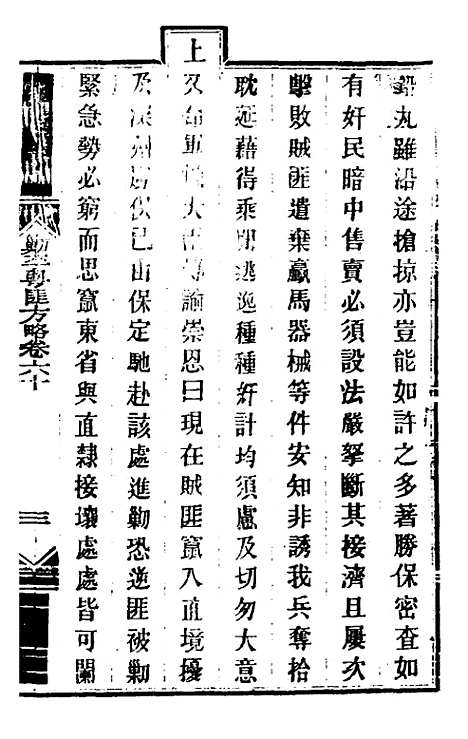 鉛丸雖沿途搶掠亦豈能如許之多著勝保密查如
有奸民暗中售賣必須設法嚴拏斷其接濟且屢次
擊敗賊匪遺棄贏馬器械等件安知非誘我兵奪拾
耽延藉得乘間逃逸種種奸計均須慮及切勿大意
上又命軍機大臣傳諭崇恩曰現在賊匪竄入直境擾
及深州勝保已由保定馳赴該處進勦恐逆匪被勦
緊急勢必窮而思竄東省與直隸接壤處處皆可闌
勦平粵匪方略卷六十
三